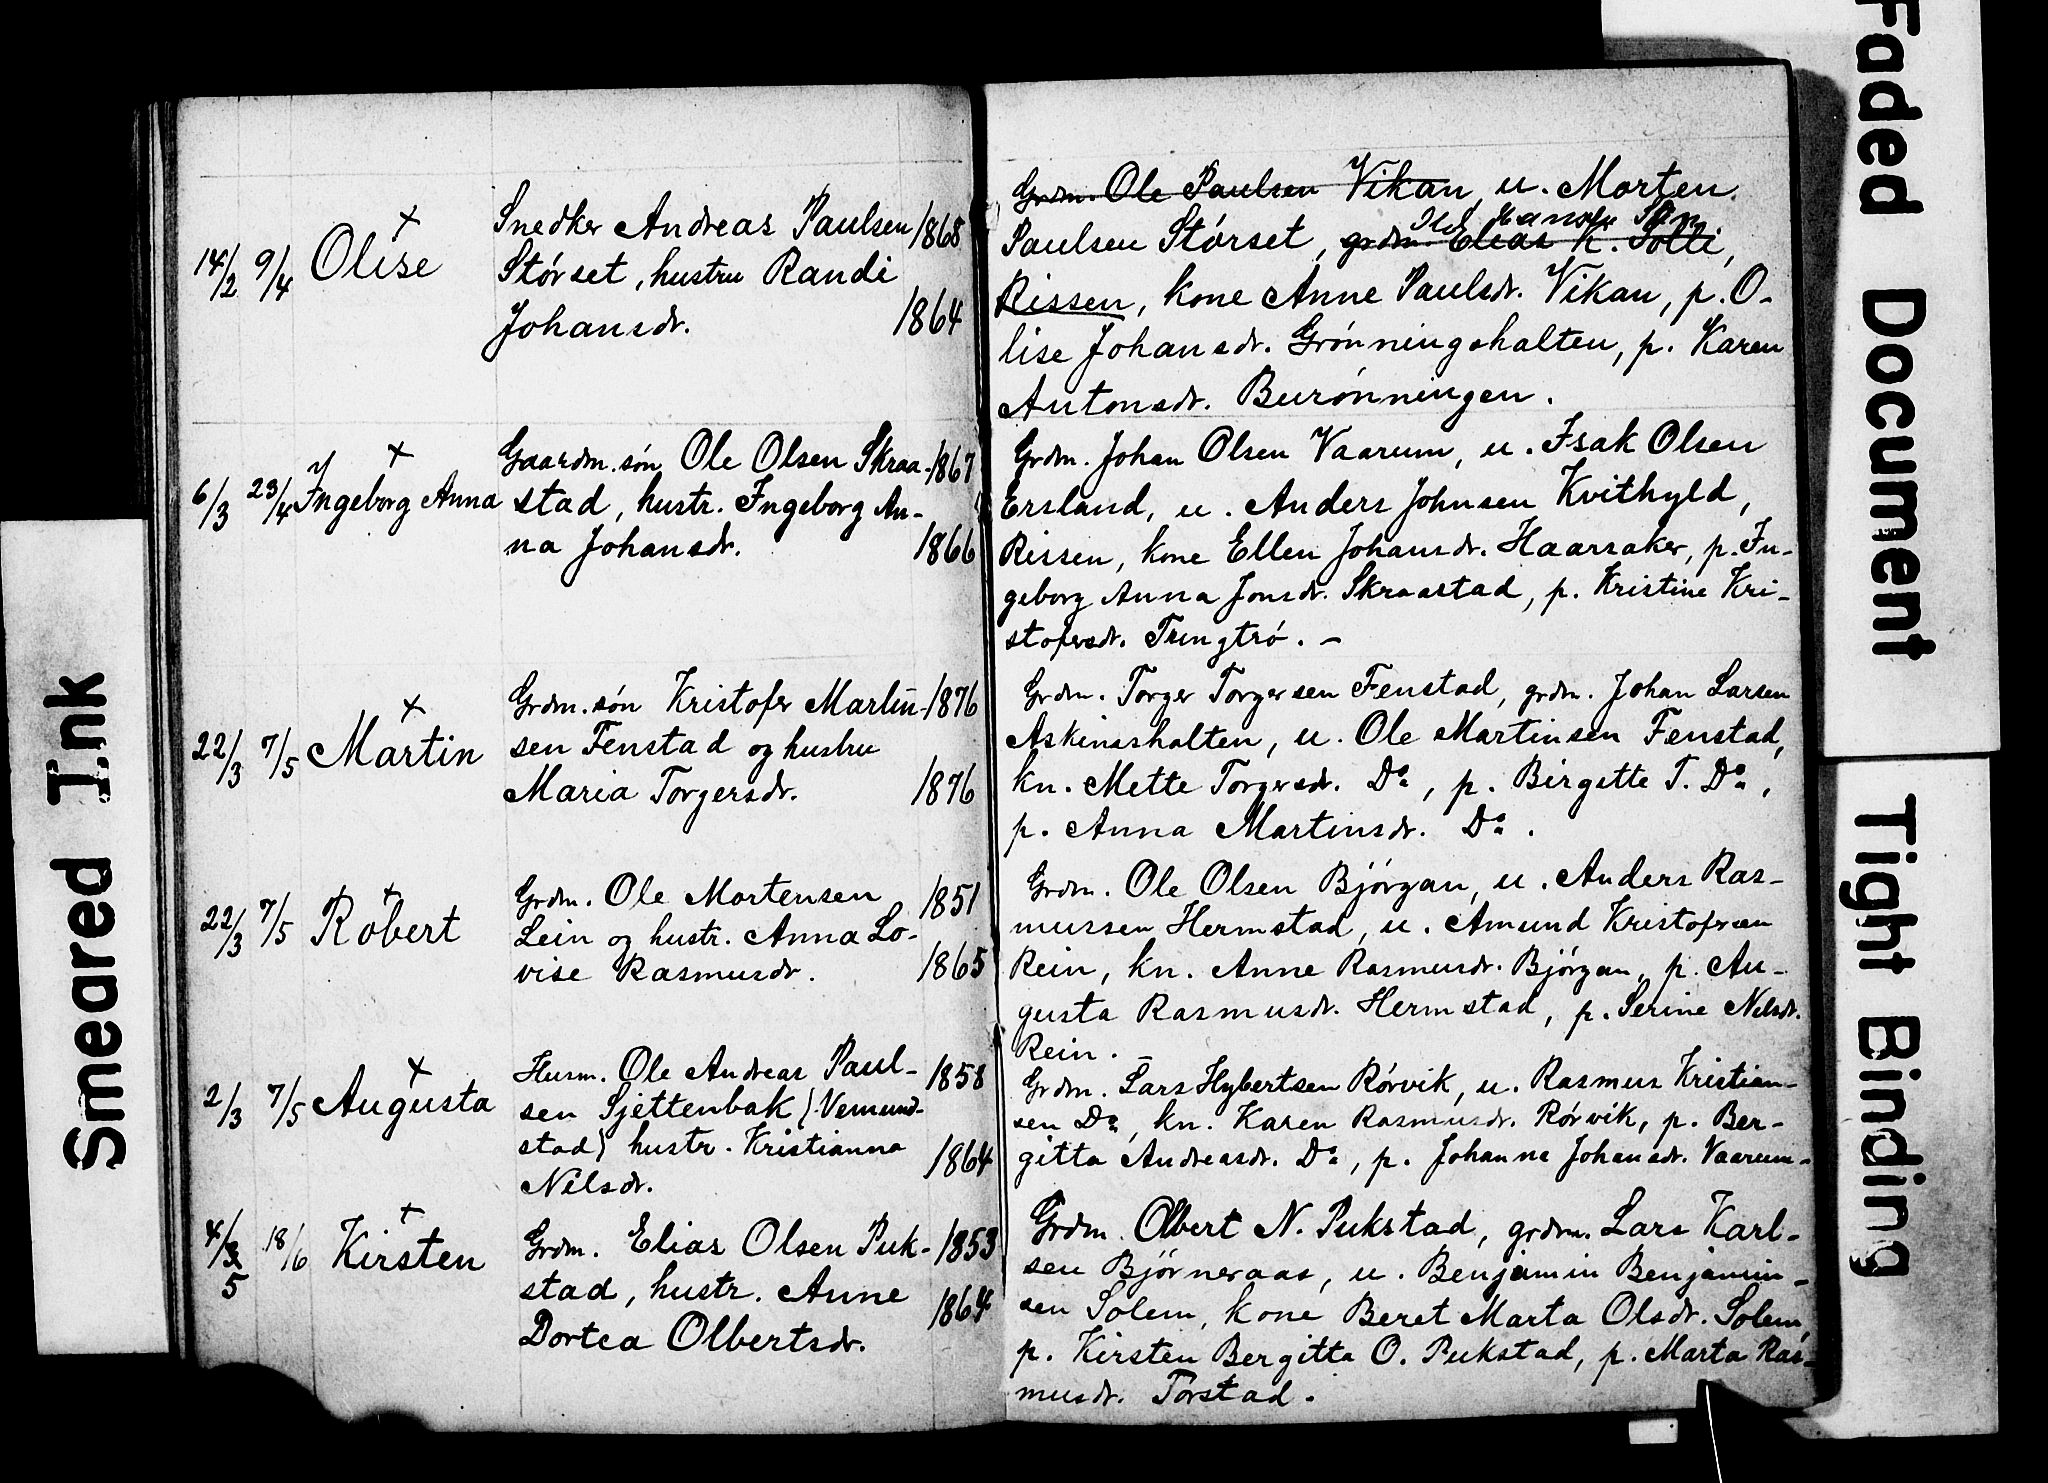 14/2 9/4 Olise
Snedker Andreas Paulsen 1868
Störset, hustru Randi
Johansdr. 1864
Grdm. Ole Paulsen Vikan, u. Morten
Paulsen Störset, grdm. Elias K. Solli,
Rissen, kone Anne Paulsdr. Vikan, p. O-
lise Johansdr. Grönningshalten, p. Karen
Antonsdr. Burönningen.
6/3 23/4 Ingeborg Anna
Gaardm. søn Ole Olsen Skraa- 1867
stad, hustr. Ingeborg An-
na Johansdr. 1866
Grdm. Johan Olsen Vaarum, u. Isak Olsen
Ersland, u. Anders Johnsen Kvithyld,
Rissen, kone Ellen Johansdr. Haarsaker, p. In-
geborg Anna Jonsdr. Skraastad, p. Kristine Kri-
stofersdr. Trengtrö. -
22/3 7/5 Martin
Grdm. søn Kristofer Martin- 1876
sen Fenstad og hustru
Maria Torgersdr. 1876
Grdm. Torger Torgersen Fenstad, grdm. Johan Larsen
Askinashalten, u. Ole Martinsen Fenstad,
kn. Mette Torgersdr. Do, p. Birgitte T. Do,
p. Anna Martinsdr. Do.
22/3 7/5 Robert
Grdm. Ole Mortensen 1851
Lein og hustr. Anna Lo-
vise Rasmusdr. 1865
Grdm. Ole Olsen Bjørgan, u. Anders Ras-
mussen Hermstad, u. Amund Kristofersen
Rein, kn. Anne Rasmusdr. Bjørgan, p. Au-
gusta Rasmusdr. Hermstad, p. Serine Nelsdr.
Rein. -
2/3 7/5 Augusta
Husm. Ole Andreas Paul- 1858
sen Sjettenbak (Vemund-
stad) hustr. Kristianna 1864
Nilsdr.
Grdm. Lars Hybertsen Rørvik, u. Rasmus Kristian-
sen Do, kn. Karen Rasmusdr. Rørvik, p. Ber-
gitta Andreasdr. Do, p. Johanna Johansdr. Vaarum.
4/5 18/6 Kirsten
Grdm. Elias Olsen Puk- 1853
stad, hustr. Anne 1864
Dortea Olbertsdr.
Grdm. Olbert N. Pukstad, grdm. Lars Karl-
sen Bjørneraas, u. Benjamin Benjamin-
sen Solem, kone Beret Marta Olsdr. Solem,
p. Kirsten Bergitta O. Pukstad, p. Marta Ras-
musdr. Torstad.
Smeared Ink
Faded Document
Tight Binding